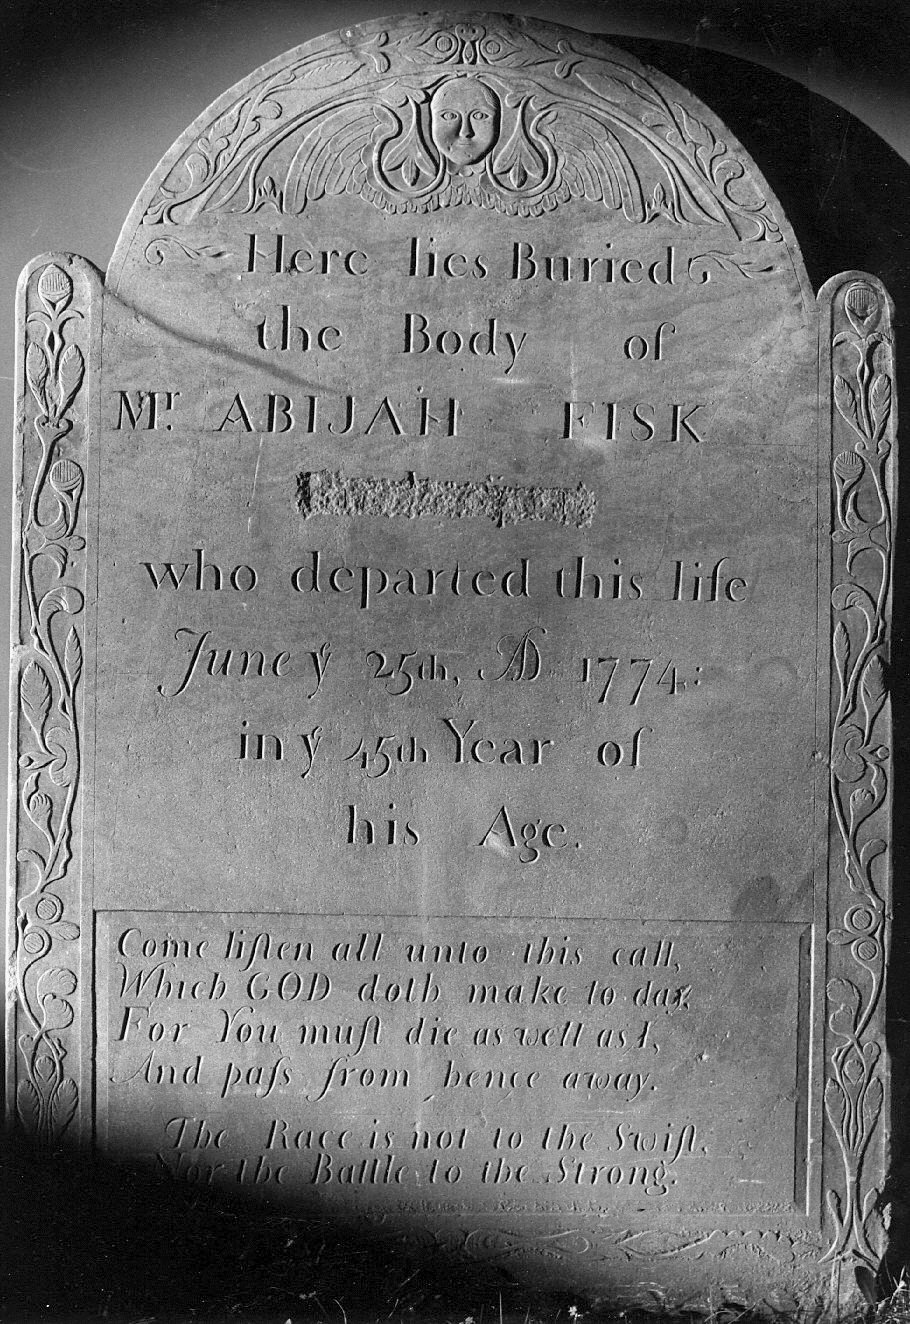 Here lies Buried
the Body of
Mr. ABIJAH FISK
who departed this life
June yͤ 25th, AD 1774:
in yͤ 45th Year of
his Age.
Come liſten all unto this call,
Which GOD doth make to day
For You muſt die as well as I,
And paſs from hence away.
The Race is not to the Swift,
Nor the Battle to the Strong.